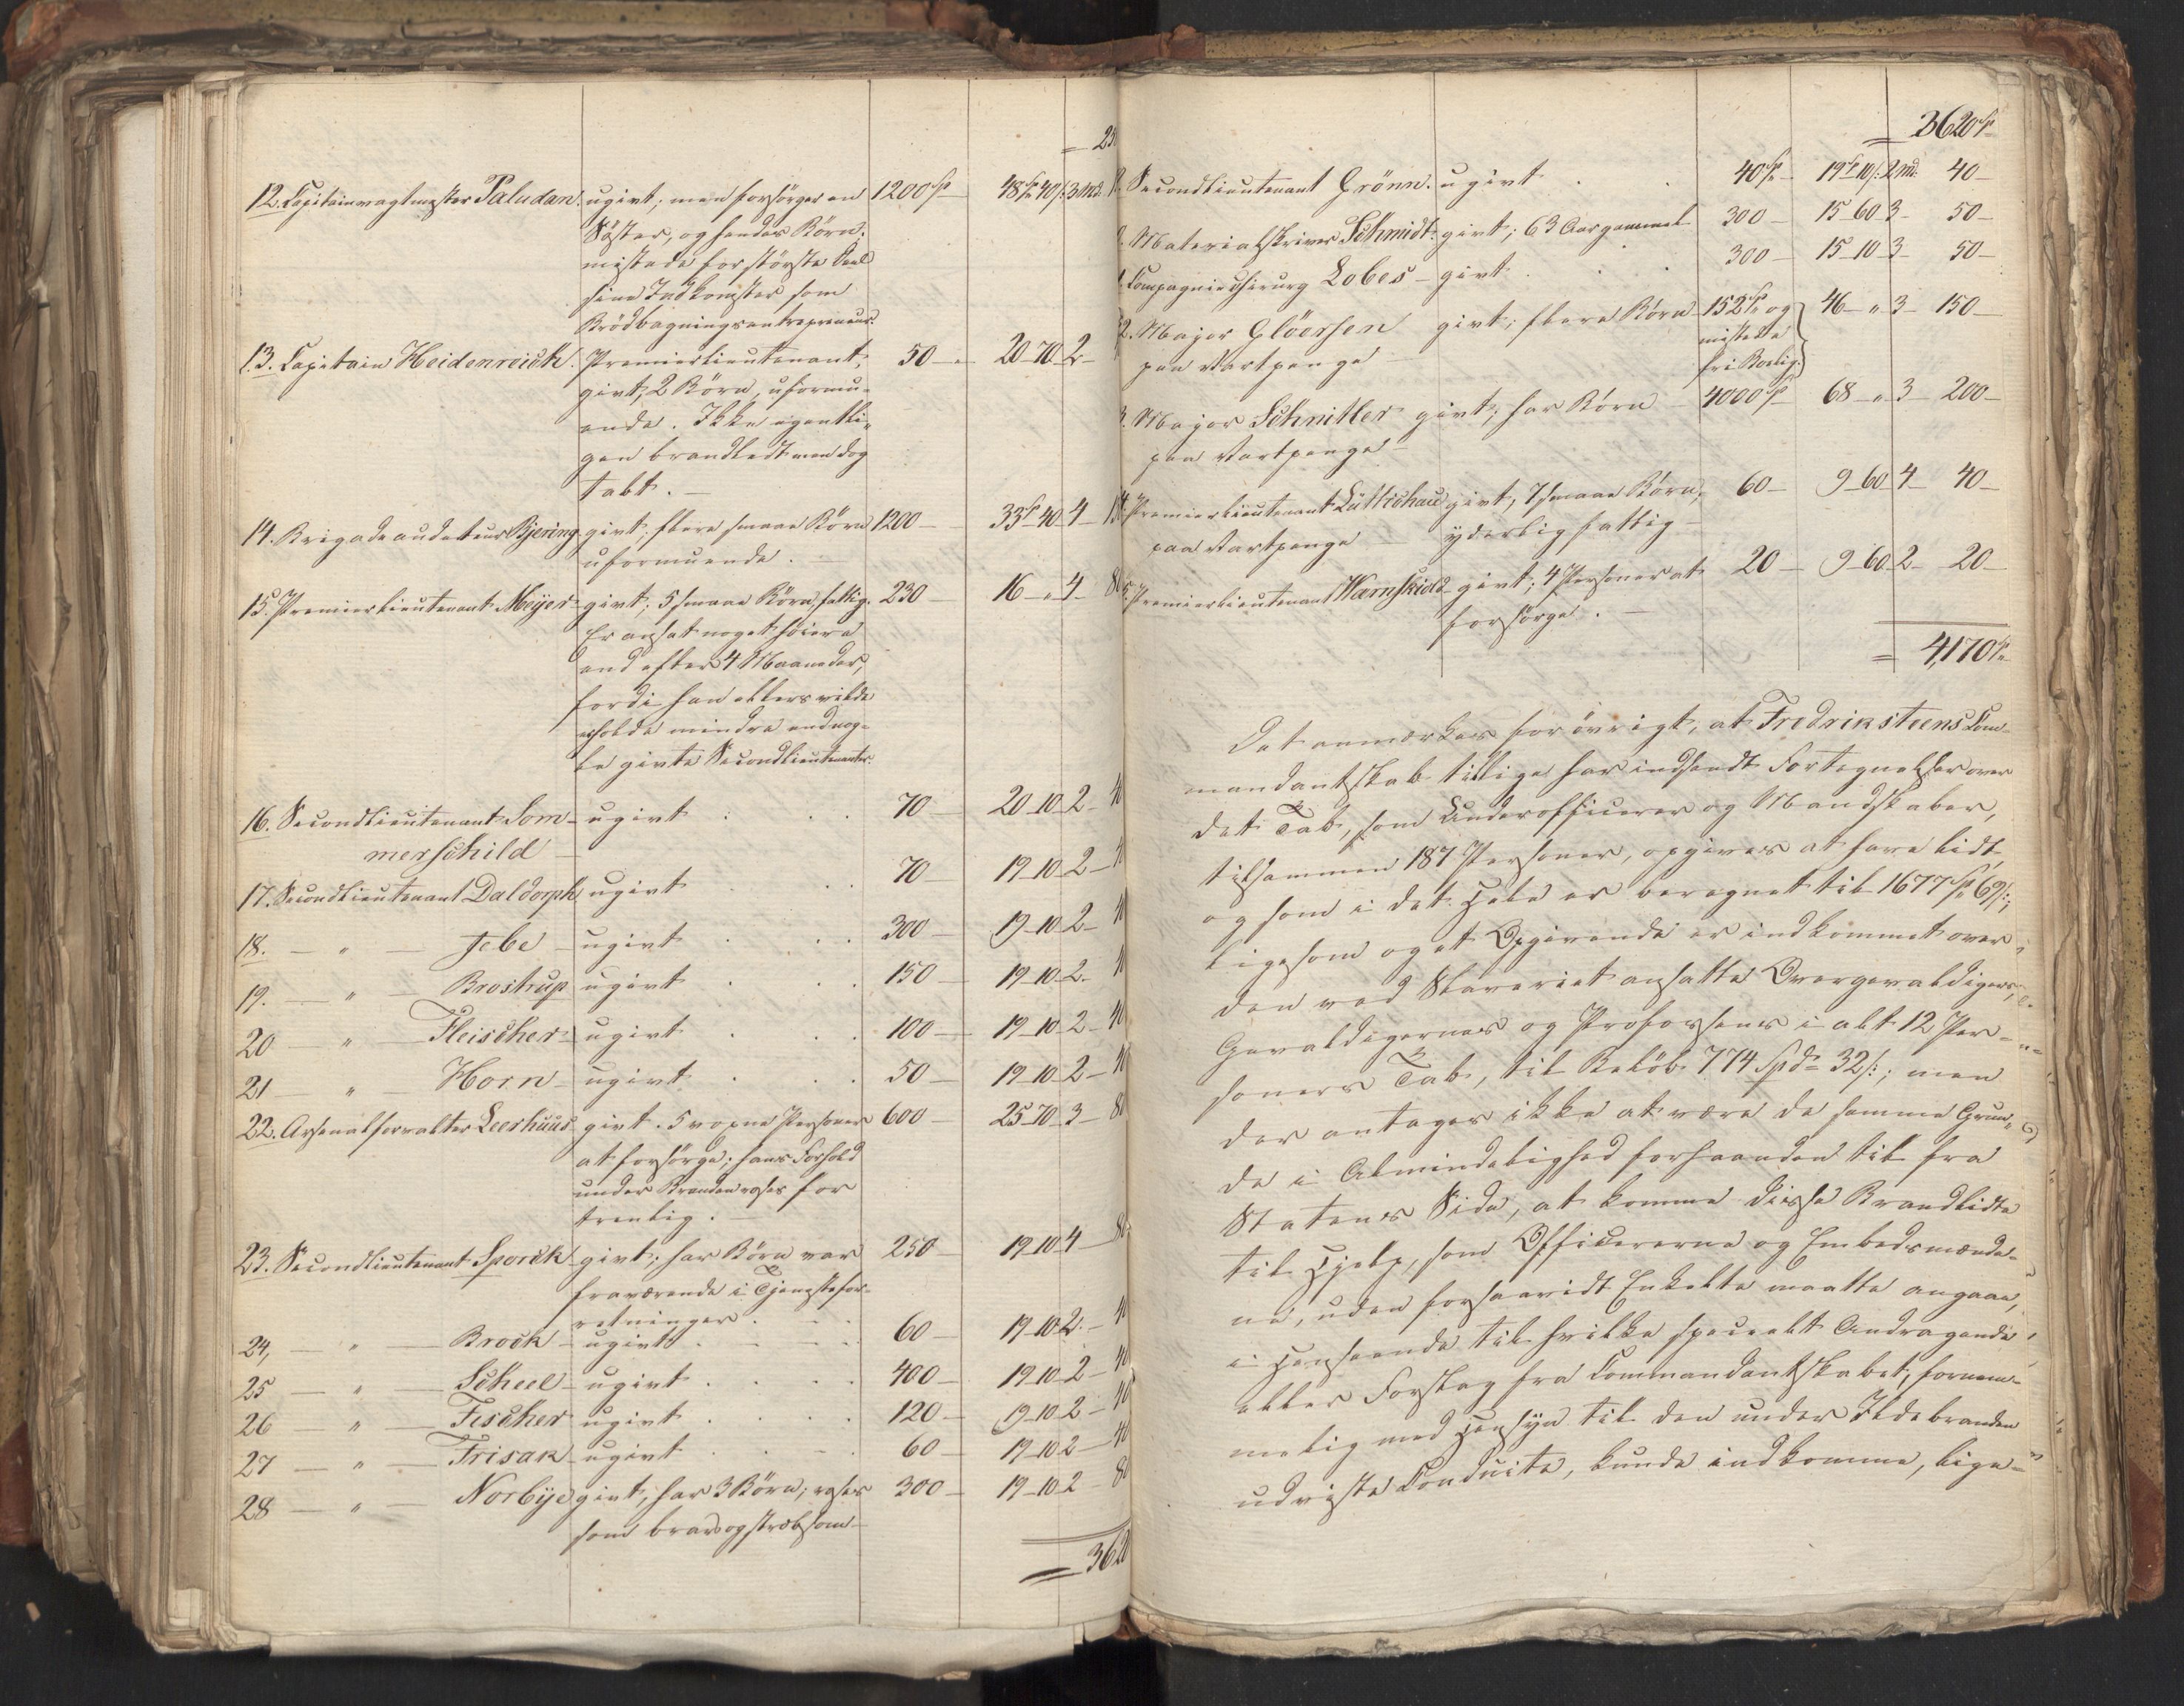 = 23
12. Capitainvagtmester Paludan. ugivt; men forsörger en 1200 Sp 48 Sp 40 s: 3 Md.
Söster, og hendes Börn;
mistede for störste Deel
sine Indkomster som
Brödbagningsentrepreneur.
13. Capitain Heidenreich. Premierlieutenant, 50 — 20 70 2 —
givt, 2 Börn, uformu-
ende. Ikke egentli-
gen brandlidt men dog
tabt. —
14. Brigadeauditeur Bjering givt; flere smaae Börn 1200 — 33 Sp 40 4 —
uformuende. —
15. Premierlieutenant Meyer — givt; 5 smaae Börn, fattig. 230 — 16 — " 4 — 80
Er ansat noget höiere
end efter 4 Maaneder,
fordi han ellers vilde
erholde mindre end nog-
le givte Secondlieutenanter.
16. Secondlieutenant Som- ugivt . . . 70 — 20 10 2 — 40
merschild —
17. Secondlieutenant Daldorph ugivt . . . 70 — 19 10 2 — 40
18. — " — Jebe — ugivt . . . 300 — 19 10 2 — 40
19. — " — Brostrup ugivt . . . 150 — 19 10 2 — 40
20 — " — Fleischer — ugivt . . . 100 — 19 10 2 — 40
21 — " — Horn — ugivt . . . 50 — 19 10 2 — 40
22. Arsenalforvalter Leerhuus — givt. 5 voxne Personer 600 — 25 70 3 — 80
at forsörge; hans Forhold
under Branden roses for
trenlig. —
23. Secondlieutenant Sporck — givt; har Börn var 250 — 19 10 4 — 80
fraværende i Tjenestefor-
retninger. — —
24, — " — Brock — ugivt . — — 60 — 19 10 2 — 40
25 — " — Scheel — ugivt . . . . 400 — 19 10 2 — 40
26 — " — Fischer ugivt . . . . 120 — 19 10 2 — 40
27 — " — Frisak — ugivt . . — . 60 — 19 10 2 — 40
28 — " — Norbye givt, har 3 Börn; roses 300 — 19 10 2 — 80
som brav og stræbsom —
= 3620
= 3620 Sp
Secondlieutenant Grönn. ugivt . . 40 Sp — 19 Sp 10 s: 2 md. 40 —
Materialskriver Schmidt: givt; 63 Aar gammel 300 — 15 60 3 — 50 —
Compagniechirurg Lobes — givt . . . 300 — 15 10 3 — 50 —
2. Major Glöersen givt; flere Börn 152 Sp og 46 — " 3 — 150 —
paa Vartpenge — mistede
fri Bolig.
3. Major Schnitler givt; har Börn — 4000 Sp 68 — " 3 — 200 —
paa Vartpenge —
Premierlieutenant Lüttichau givt, 7 smaae Börn, 60 — 9 60 4 — 40 —
paa Vartpenge — yderlig fattig —
Premierlieutenant Wærnskiold — givt; 4 Personer at 20 — 9 60 2 — 20 —
forsörge. —
= 4,170 Sp
Det anmærkes forövrigt, at Fredriksteens Com-
mandantskab tillige har indsendt Fortegnelser over
det Tab, som Underofficerer og Mandskaber,
tilsammen 187 Personer, opgives at have lidt
og som i det Hele er beregnet til 1677 Sp 69 s:,
ligesom og et Opgivende er indkommet over
den ved Slaveriet ansatte Overgevaldigers,
Gevaldigernes og Profossens i alt 12 Per-
soners Tab, til Belöb 774 Spd. 32 s:; men
der antages ikke at være de samme Grun-
de i Almindelighed forhaanden til fra
Statens Side, at komme disse Brandlidte
til Hjelp, som Officererne og Embedsmænde-
ne, uden forsaavidt Enkelte maatte angaae,
i Henseende til hvilke specielt Andragende
eller Forslag fra Commandantskabet, fornem-
melig med Hensyn til den under Ildebranden
udviste Conduite, kunde indkomme, lige-